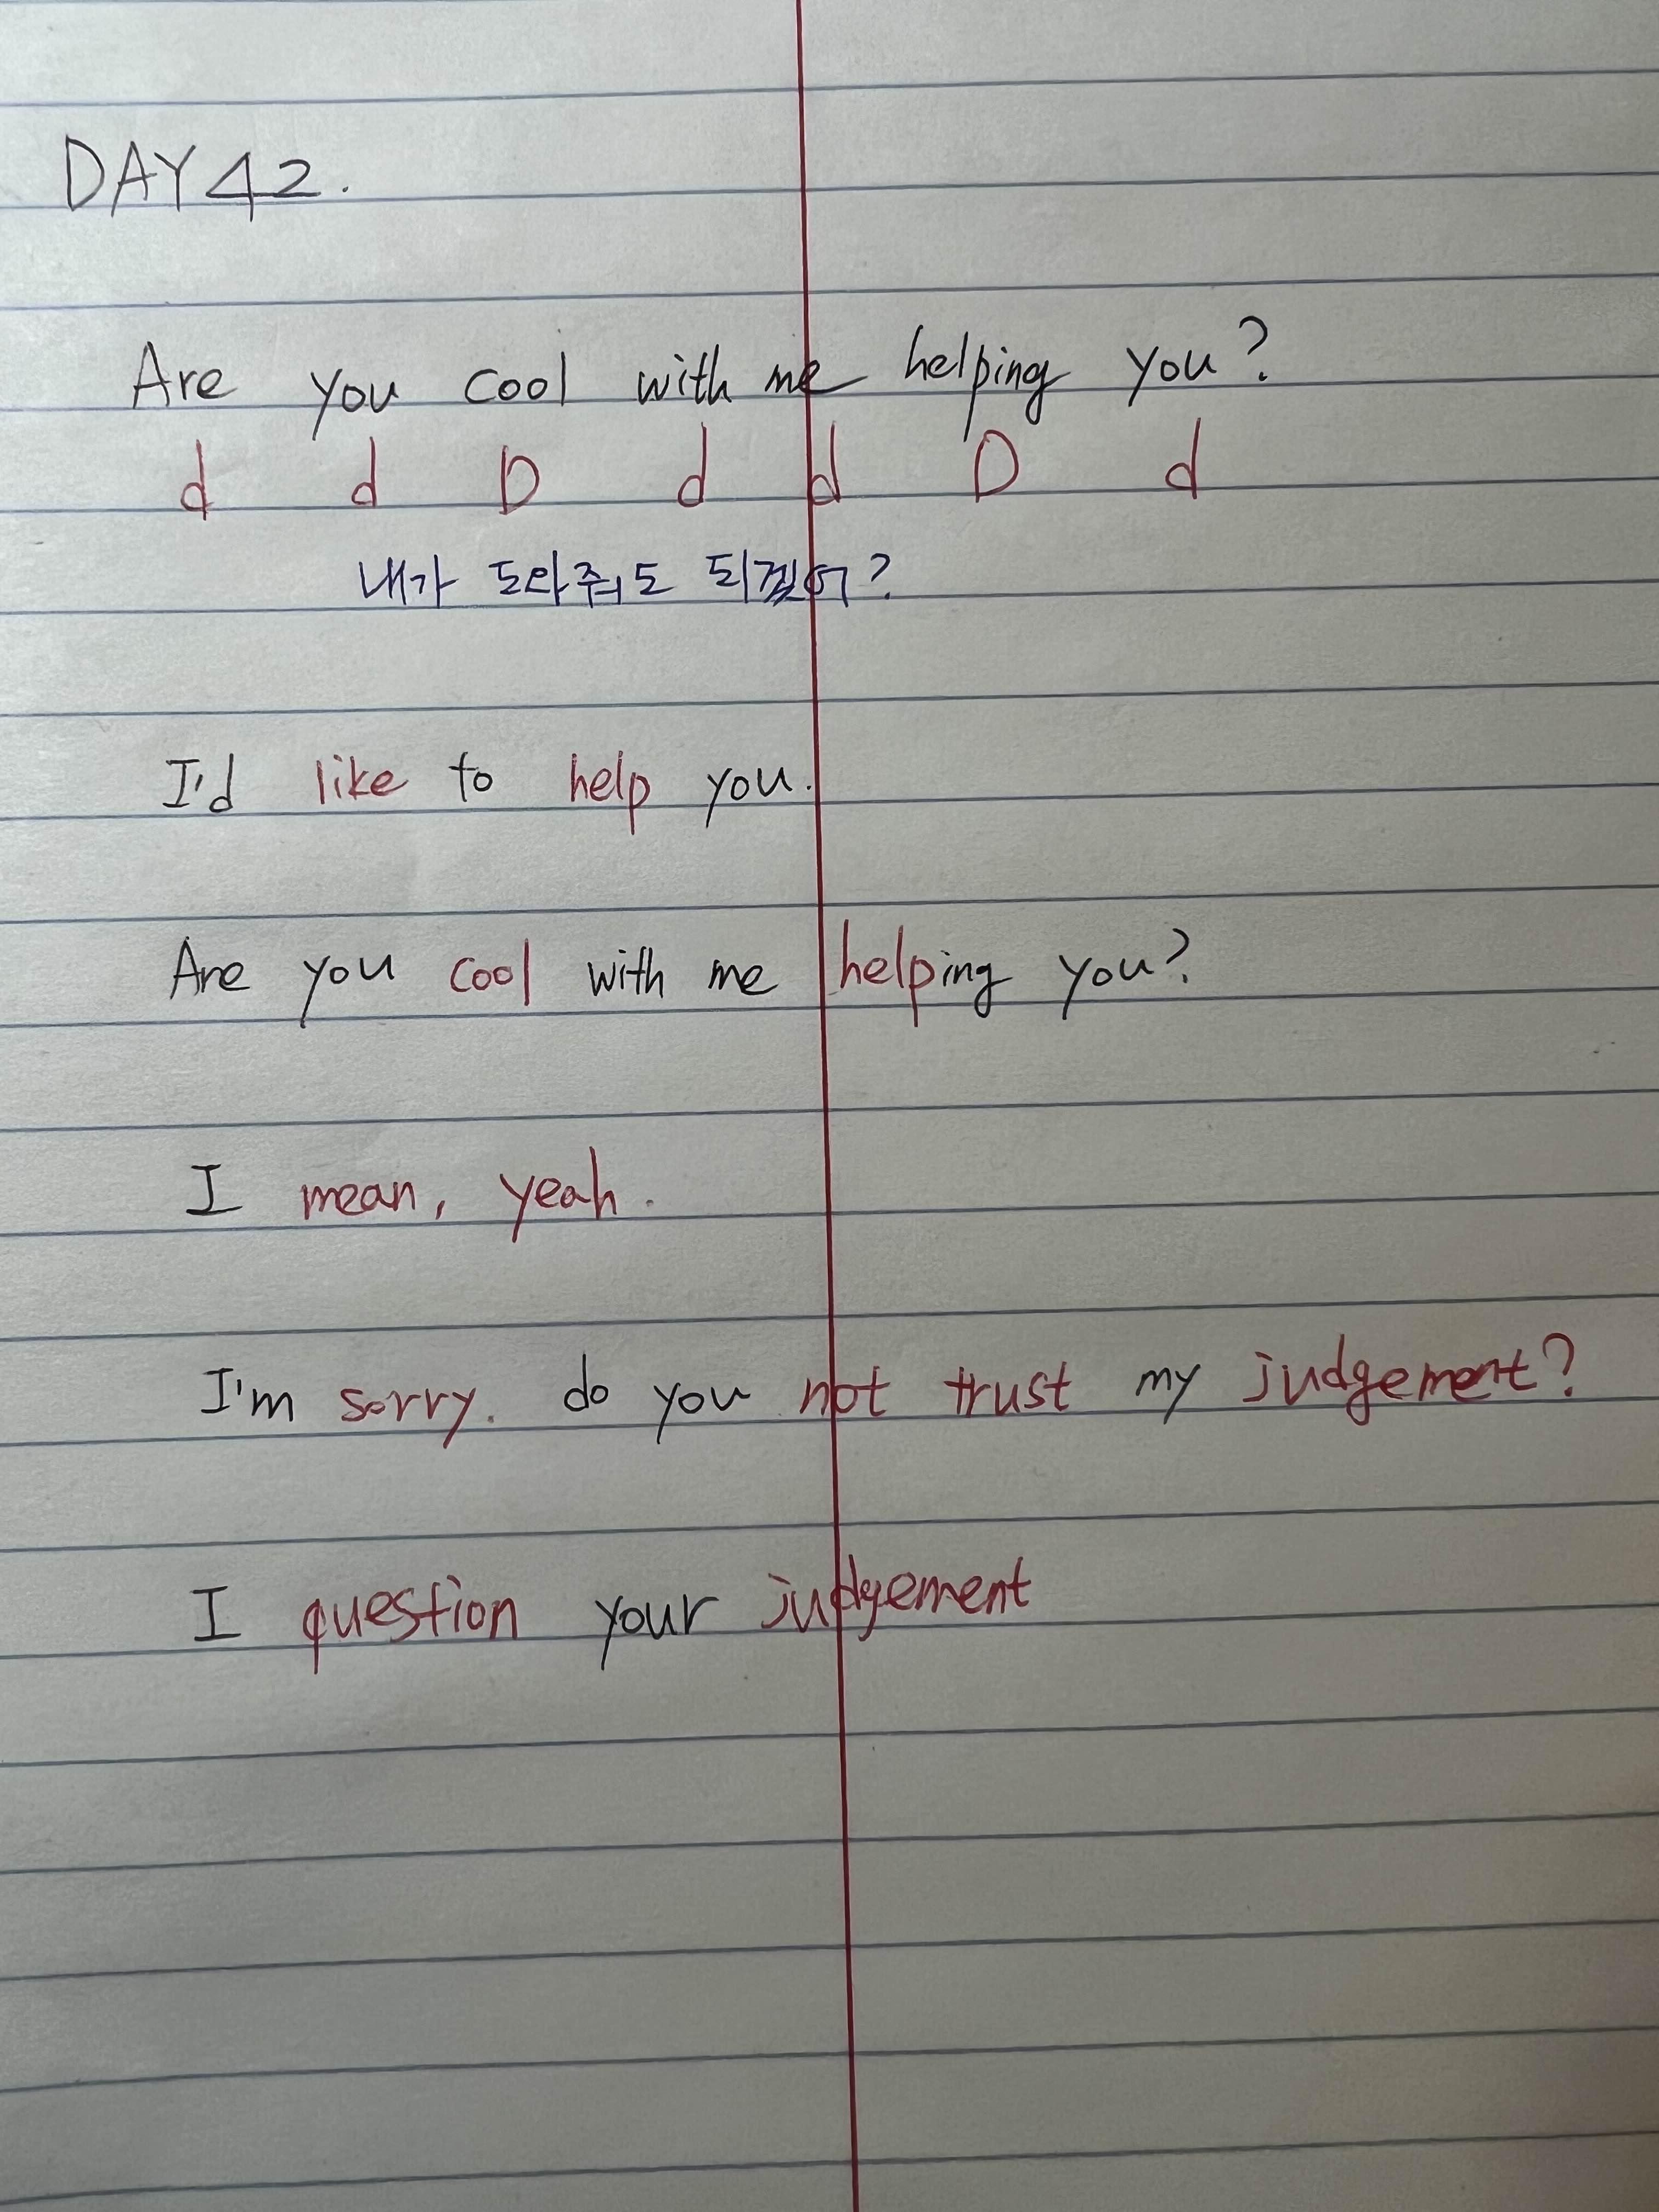 DAY 42.
Are you cool with me helping you?
d d D d d D d
내가 도와줘도 되겠어?
I'd like to help you.
Are you cool with me helping you?
I mean, yeah.
I'm sorry. do you not trust my judgement?
I question your judgement